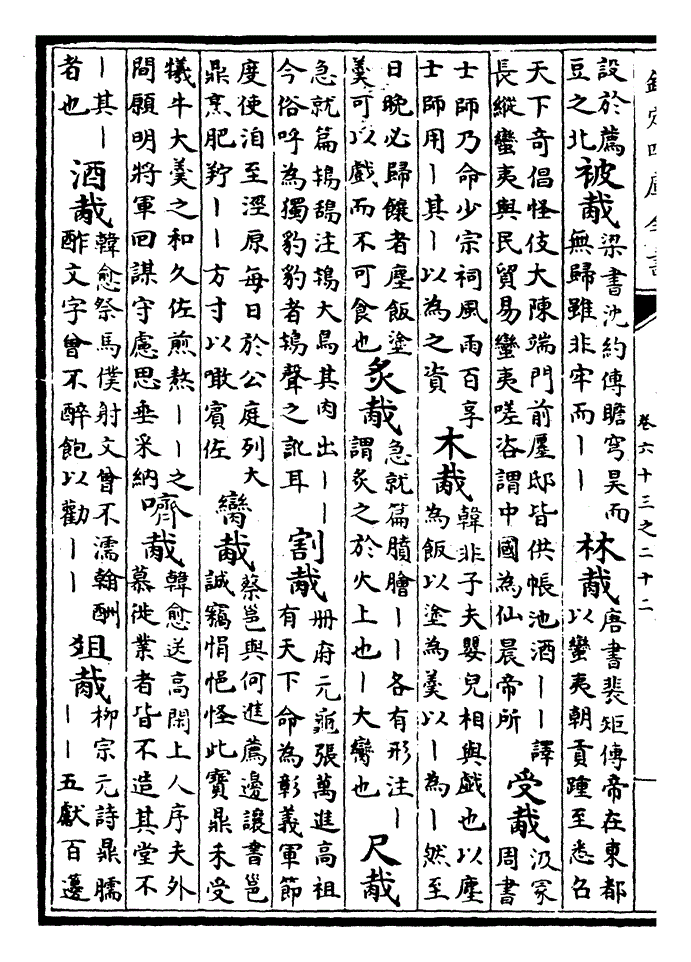 欽定四庫全書
卷六十三之二十二
設於薦豆之北 被胾 梁書沈約傳瞻穹昊而無歸雖非牢而丨丨 林胾 唐書裴矩傳帝在東都以蠻夷朝貢踵至悉召
天下奇倡怪伎大陳端門前廛邸皆供帳池酒丨丨譯長縱蠻夷與民貿易蠻夷嗟咨謂中國為仙晨帝所 受胾 汲冡周書
士師乃命少宗祠風雨百享士師用丨其丨以為之資 木胾 韓非子夫嬰兒相與戯也以塵為飯以塗為羮以丨為丨然至
日晚必歸饟者塵飯塗羮可以戯而不可食也 炙胾 急就篇膹膾丨丨各有形注丨謂炙之於火上也丨大臠也 尺胾
急就篇鴇鴰注鴇大鳥其肉出丨丨今俗呼為獨豹豹者鴇聲之訛耳 割胾 册府元龜張萬進高祖有天下命為彰義軍節
度使洎至涇原每日於公庭列大鼎烹肥羜丨丨方寸以噉賓佐 臠胾 蔡邕與何進薦邊讓書邕誠竊悁悒怪此寶鼎未受
犧牛大羮之和久佐煎熬丨丨之間願明將軍回謀守慮思垂采納 嚌胾 韓愈送高閑上人序夫外慕徙業者皆不造其堂不
丨其丨者也 酒胾 韓愈祭馬僕射文曾不濡翰酬酢文字曾不醉飽以勸丨丨 俎胾 柳宗元詩鼎臑丨丨五獻百籩